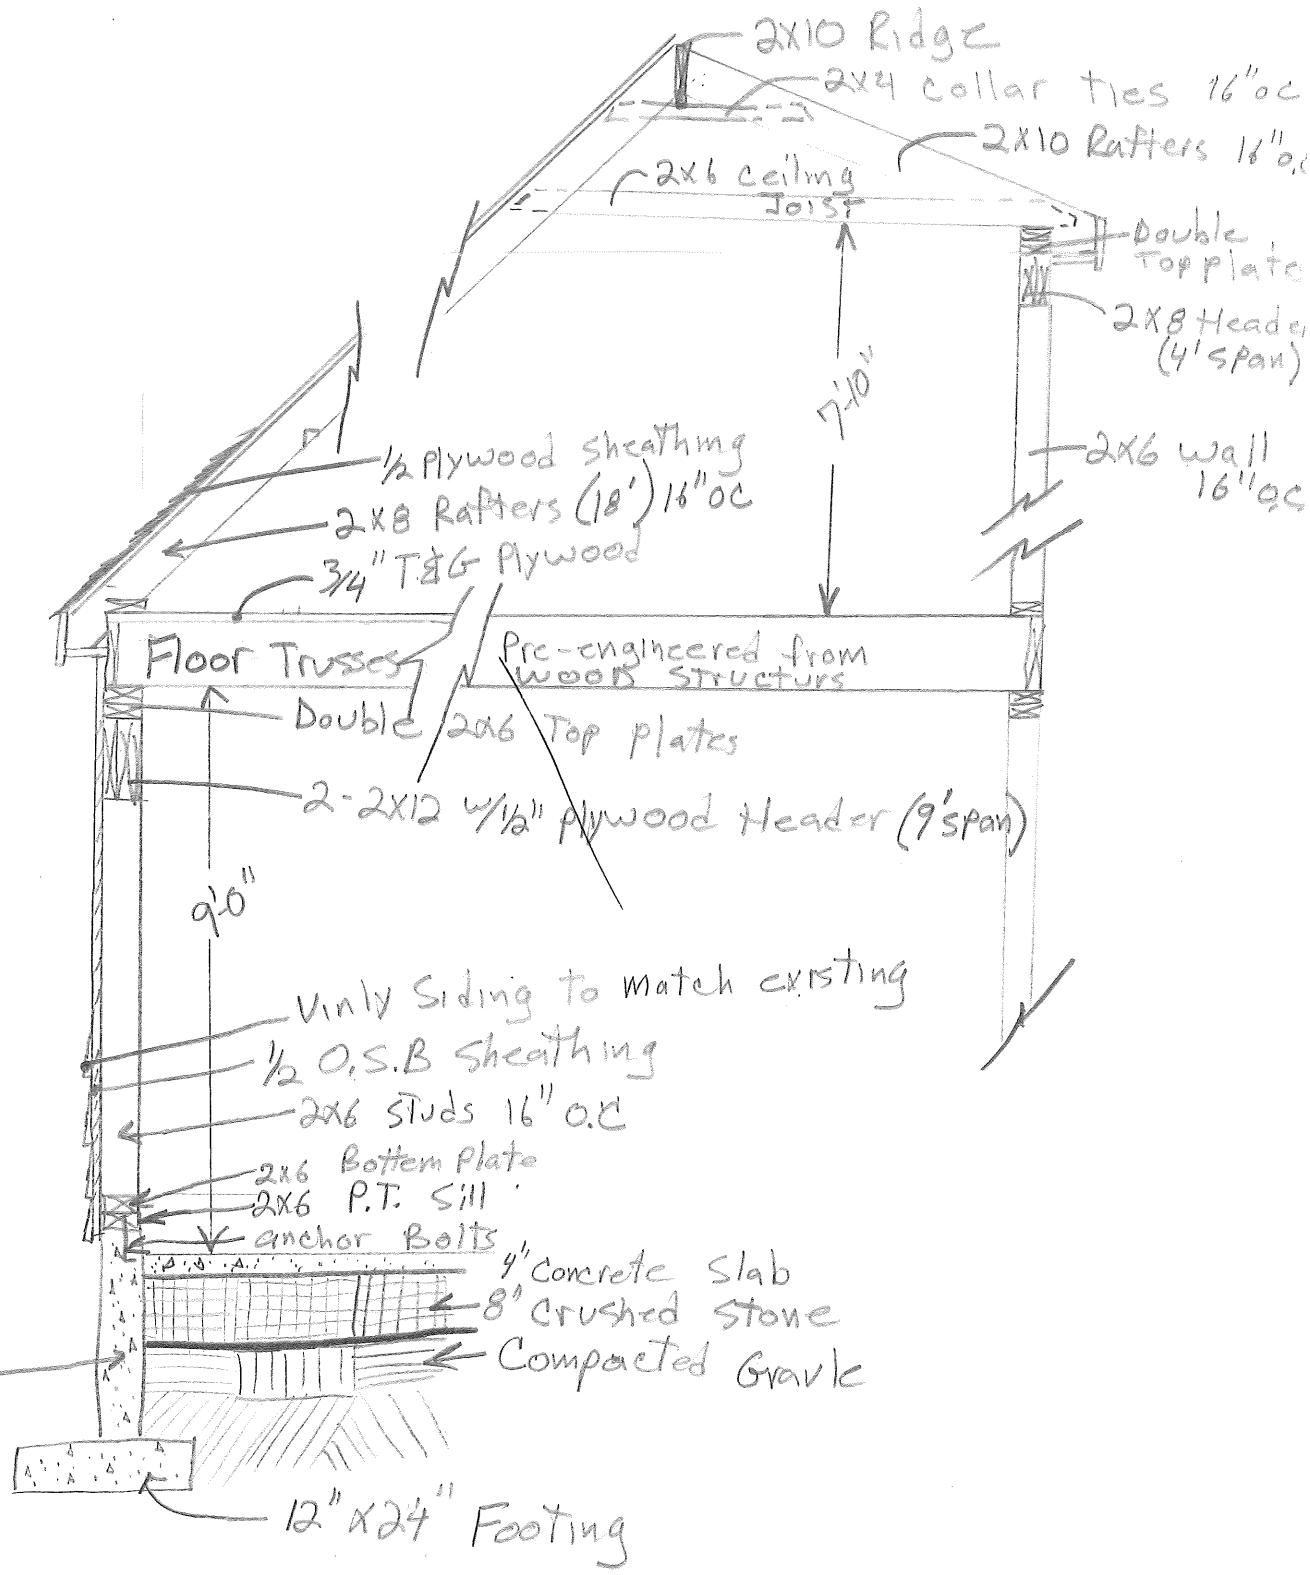 2x10 Ridge
2x4 collar ties 16" oc
2x10 Rafters 16" o.c
2x6 ceiling
Joist
Double
Top plate
2x8 Heade
(4' span)
7'-10"
2x6 wall
16" o.c
1/2 Plywood sheathing
2x8 Rafters (18') 16" oc
3/4" T&G Plywood
Floor Trusses
Pre-engineered from
Wood Structurs
Double 2x6 Top plates
2-2x12 w/1/2" plywood Header (9' span)
9'-0"
Vinly Siding to match existing
1/2 O.S.B sheathing
2x6 studs 16" O.C
2x6 Bottem plate
2x6 P.T. Sill
anchor Bolts
4" Concrete Slab
8" Crushed Stone
Compacted Gravle
12" x 24" Footing